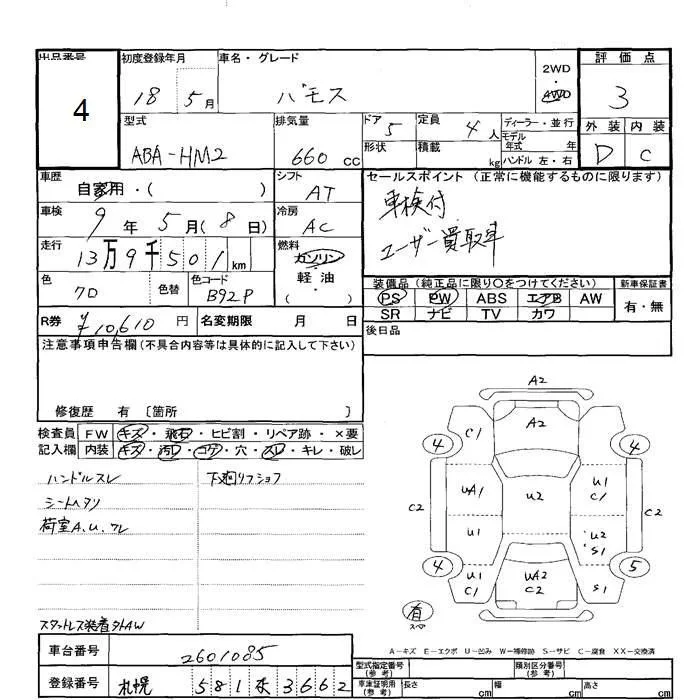 出品番号
4
初度登録年月
18 5月
車名・グレード
バモス
2WD
・
4WD
評価点
3
外装 内装
D C
型式
ABA-HM2
排気量
660 cc
ドア 5
形状
定員 4 人
積載 kg
ディーラー・並行
モデル年式 年
ハンドル 左・右
車歴
自家用・( )
シフト
AT
セールスポイント (正常に機能するものに限ります)
車検付
ユーザー買取車
車検
9 年 5 月( 8 日)
冷房
AC
走行
13万9千501 km
燃料
ガソリン
軽油
( ・ )
色
70
色替
色コード
B92P
装備品 (純正品に限り○をつけてください)
PS PW ABS エアB AW
SR ナビ TV カワ
新車保証書
有・無
R券 ¥10,610 円
名変期限 月 日
後日品
注意事項申告欄 (不具合内容等は具体的に記入して下さい)
修復歴 有 〔箇所 〕
検査員記入欄
FW キズ・飛石・ヒビ割・リペア跡・×要
内装 キズ・汚れ・コゲ・穴・スレ・キレ・破レ
ハンドルスレ
下廻リフショク
シートヘタリ
荷室A.U.ワレ
スタットレス装着 外AW
A2
4 C1 A2 4
C2 UA1 U2 U1 C1 C2
U1 U2 S1
4 U1 C1 UA2 C2 S1 5
有
スペア
A-キズ E-エクボ U-凹み W-補修跡 S-サビ C-腐食 XX-交換済
車台番号 2601085
登録番号 札幌 581 ホ 3662
型式指定番号 (参考)
類別区分番号 (参考)
車庫証明用 (参考) 長さ cm 幅 cm 高さ cm